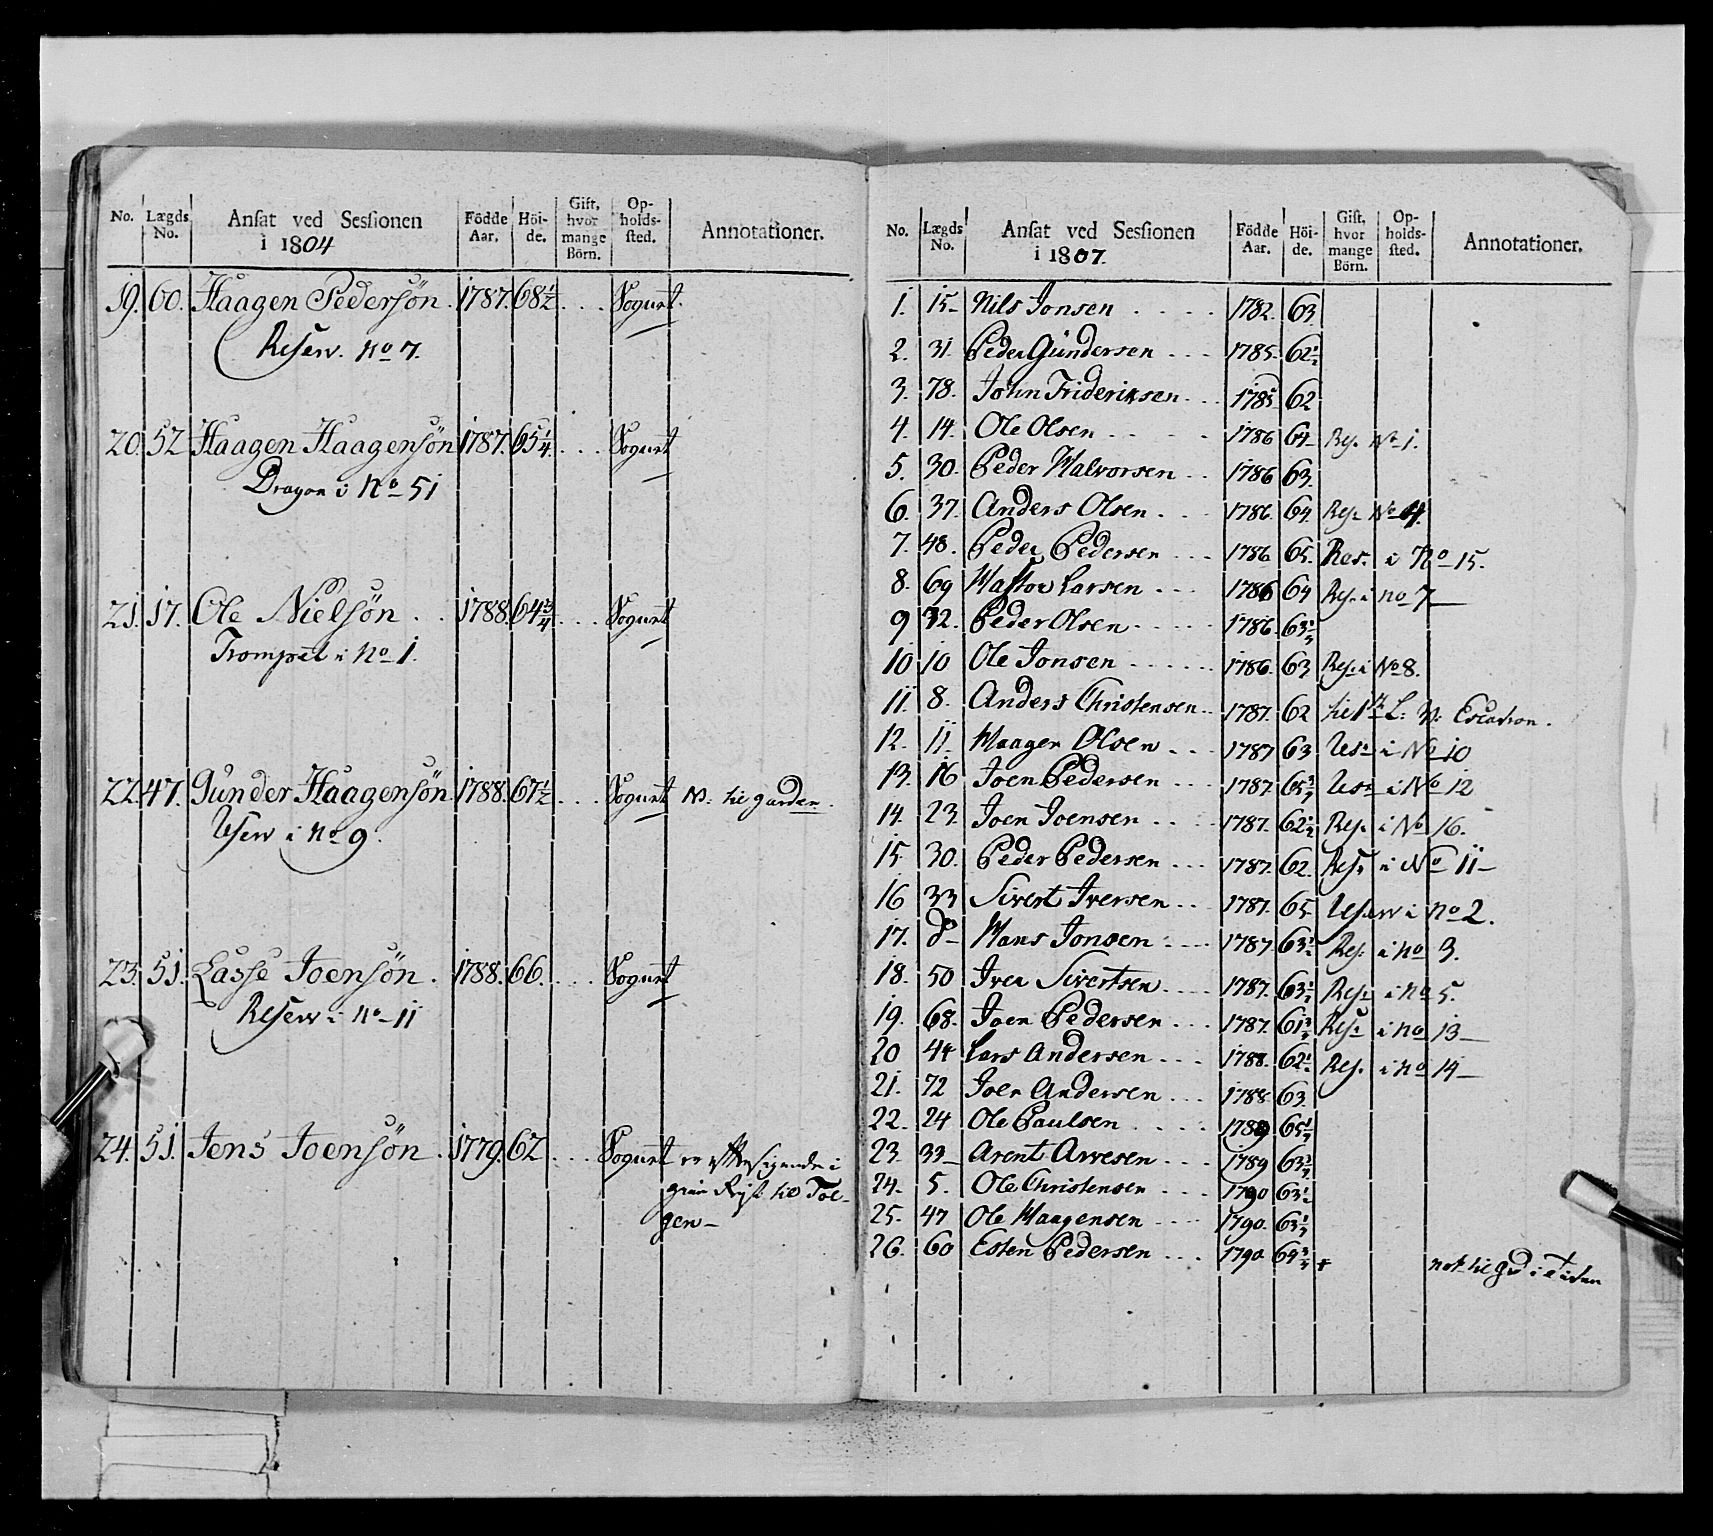 No. Lægds No. Ansat ved Sessionen i 1804 Födde Aar. Höide. Gift, hvor mange Börn. Opholdssted. Annotationer.
19. 60. Haagen Pedersön. 1787. 68½ . . . Sognet.
Reserv. No 7.
20. 52 Haagen Haagensön 1787. 65¼ . . . Sognet
Dragon i No 51
21. 17. Ole Nielsön . . 1788. 64¾ . . . Sognet
Trompet i No 1.
22. 47. Gunder Haagensön 1788. 67½ . . . Sognet No: til garden.
Reserv i No 9.
23. 51. Lasse Joensön . 1788. 66. . . . Sognet
Reserv i No 11
24. 51. Jens Joensön . 1779. 62 . . . Sognet
til Tol-
gen-
No. Lægds No. Ansat ved Sessionen i 1807. Födde Aar. Höide. Gift, hvor mange Börn. Opholdssted. Annotationer.
1. 15 Nils Jonsen . . . . 1782. 63
2. 31. Peder Gundersen . . . 1785. 62½
3. 78. John Frideriksen . . . 1785 62
4. 14. Ole Olsen . . . . 1786 64 Res. No 1.
5. 30. Peder Halvorsen . . 1786 63.
6. 37. Anders Olsen . . . 1786. 64. Res. No 4.
7. 48. Peder Pedersen . . . 1786 65. Res. i No 15.
8. 69 Larsen . . . 1786 64 Res. i No 7
9 72. Peder Olsen . . . . 1786. 63½
10 10 Ole Jonsen . . . . . 1786. 63 Res. i No 8.
11. 8. Anders Christensen . . 1787. 62 til 1 Escadron.
12. 11. Haagen Olsen . . . 1787 63 Res. i No 10
13. 16 Joen Pedersen . . . 1787. 65¾ Res. i No 12
14. 23. Joen Joensen . . . 1787. 62½ Res. i No 16.
15. 30. Peder Pedersen . . . 1787. 62. Res. i No 11
16 33 Sivert Iversen . . 1787. 65 Reserv i No 2.
17. do Hans Jonsen . . . . 1787 63½ Res. i No 3.
18. 50 Iver Sivertsen . . . . 1787. 63½ Res. i No 5.
19. 68. Joen Pedersen . . . 1787. 61¾ Res. i No 13
20 44 Lars Andersen . . . 1788. 62½ Res. i No 14
21. 72 Joen Andersen . . . 1788. 63.
22. 24 Ole Paulsen . . . . 1789 65¼
23. 33 Arent Arvesen . . . 1789 63¾
24. 5. Ole Christensen . . . 1790 63½
25. 47 Ole Haagensen . . . 1790. 63¼
26. 60 Esten Pedersen . . . 1790. 64¾ +